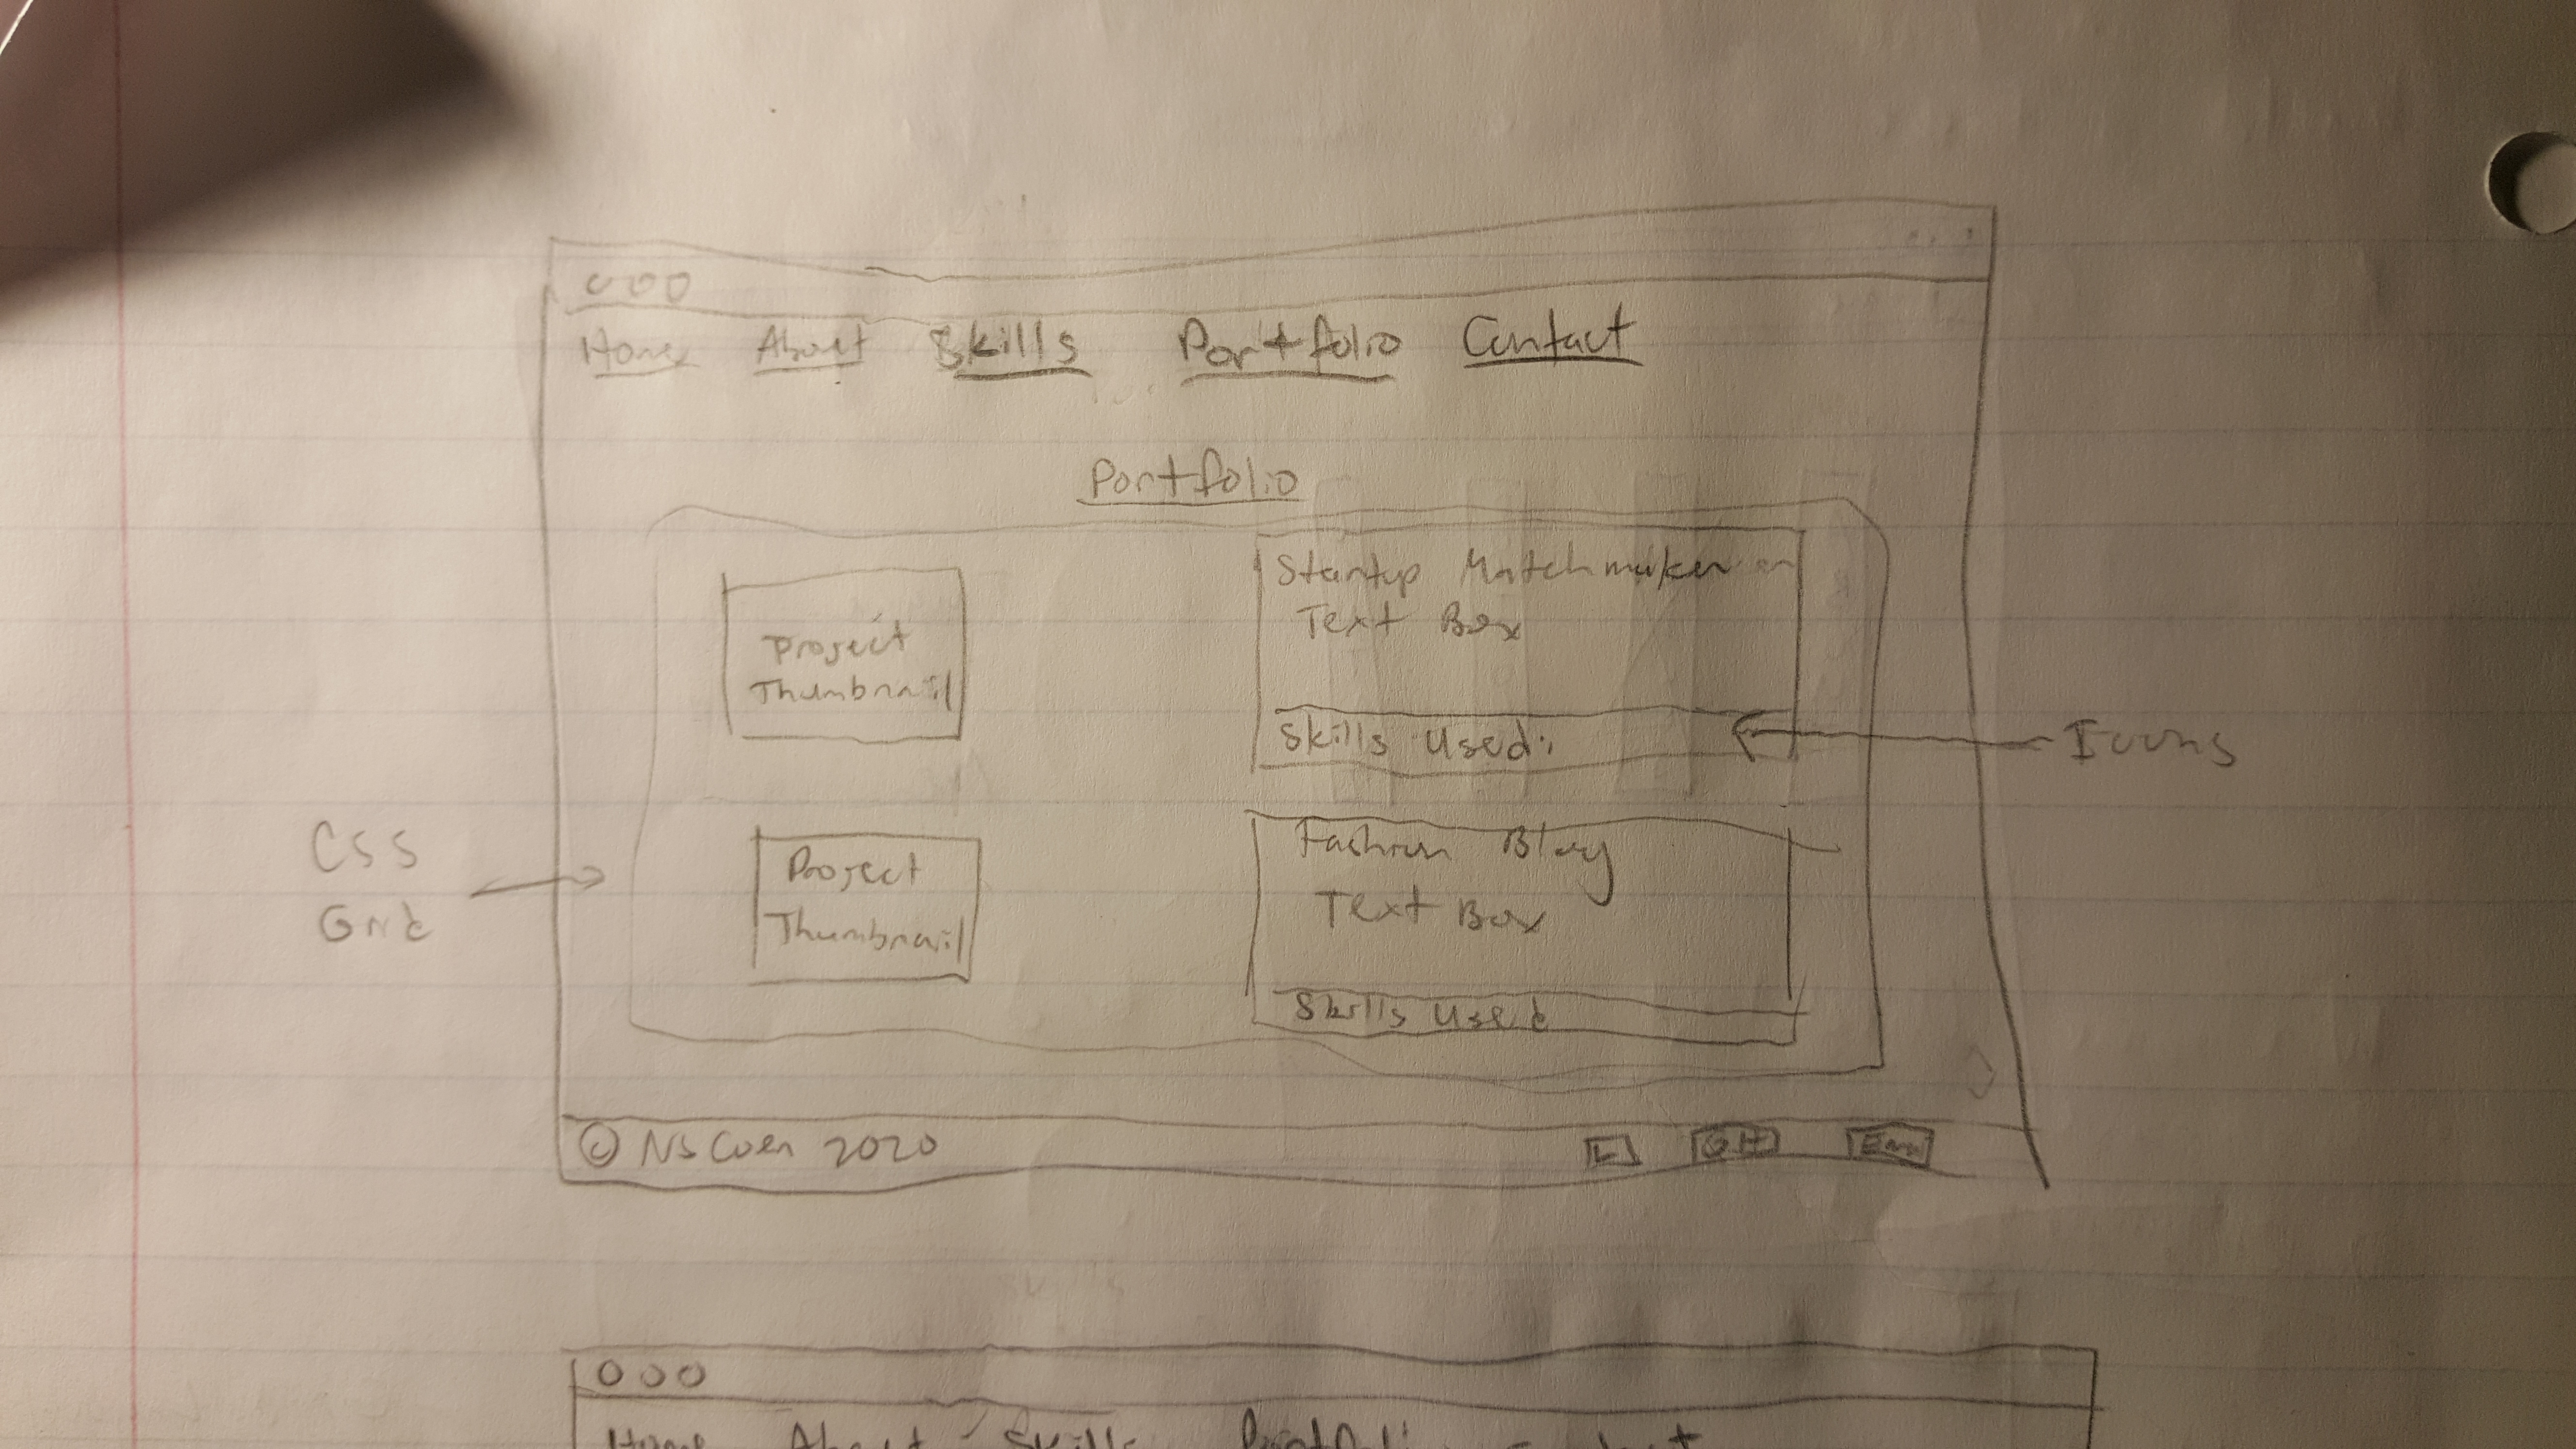 Home About Skills Portfolio Contact
Portfolio
Project
Thumbnail
Startup Matchmaker
Text Box
Skills Used:
Icons
CSS
Grid
Project
Thumbnail
Fashion Blog
Text Box
Skills Used
© 2020
L GH Em
Home About Skills Portfolio Contact